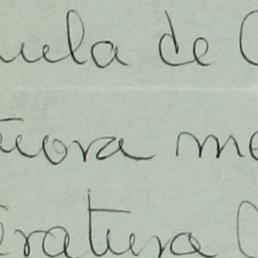 ula de
uora me
ratura